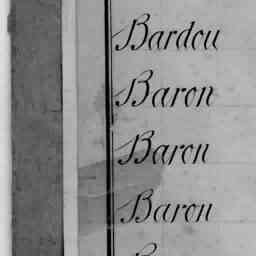 Bardou
Baron
Baron
Baron